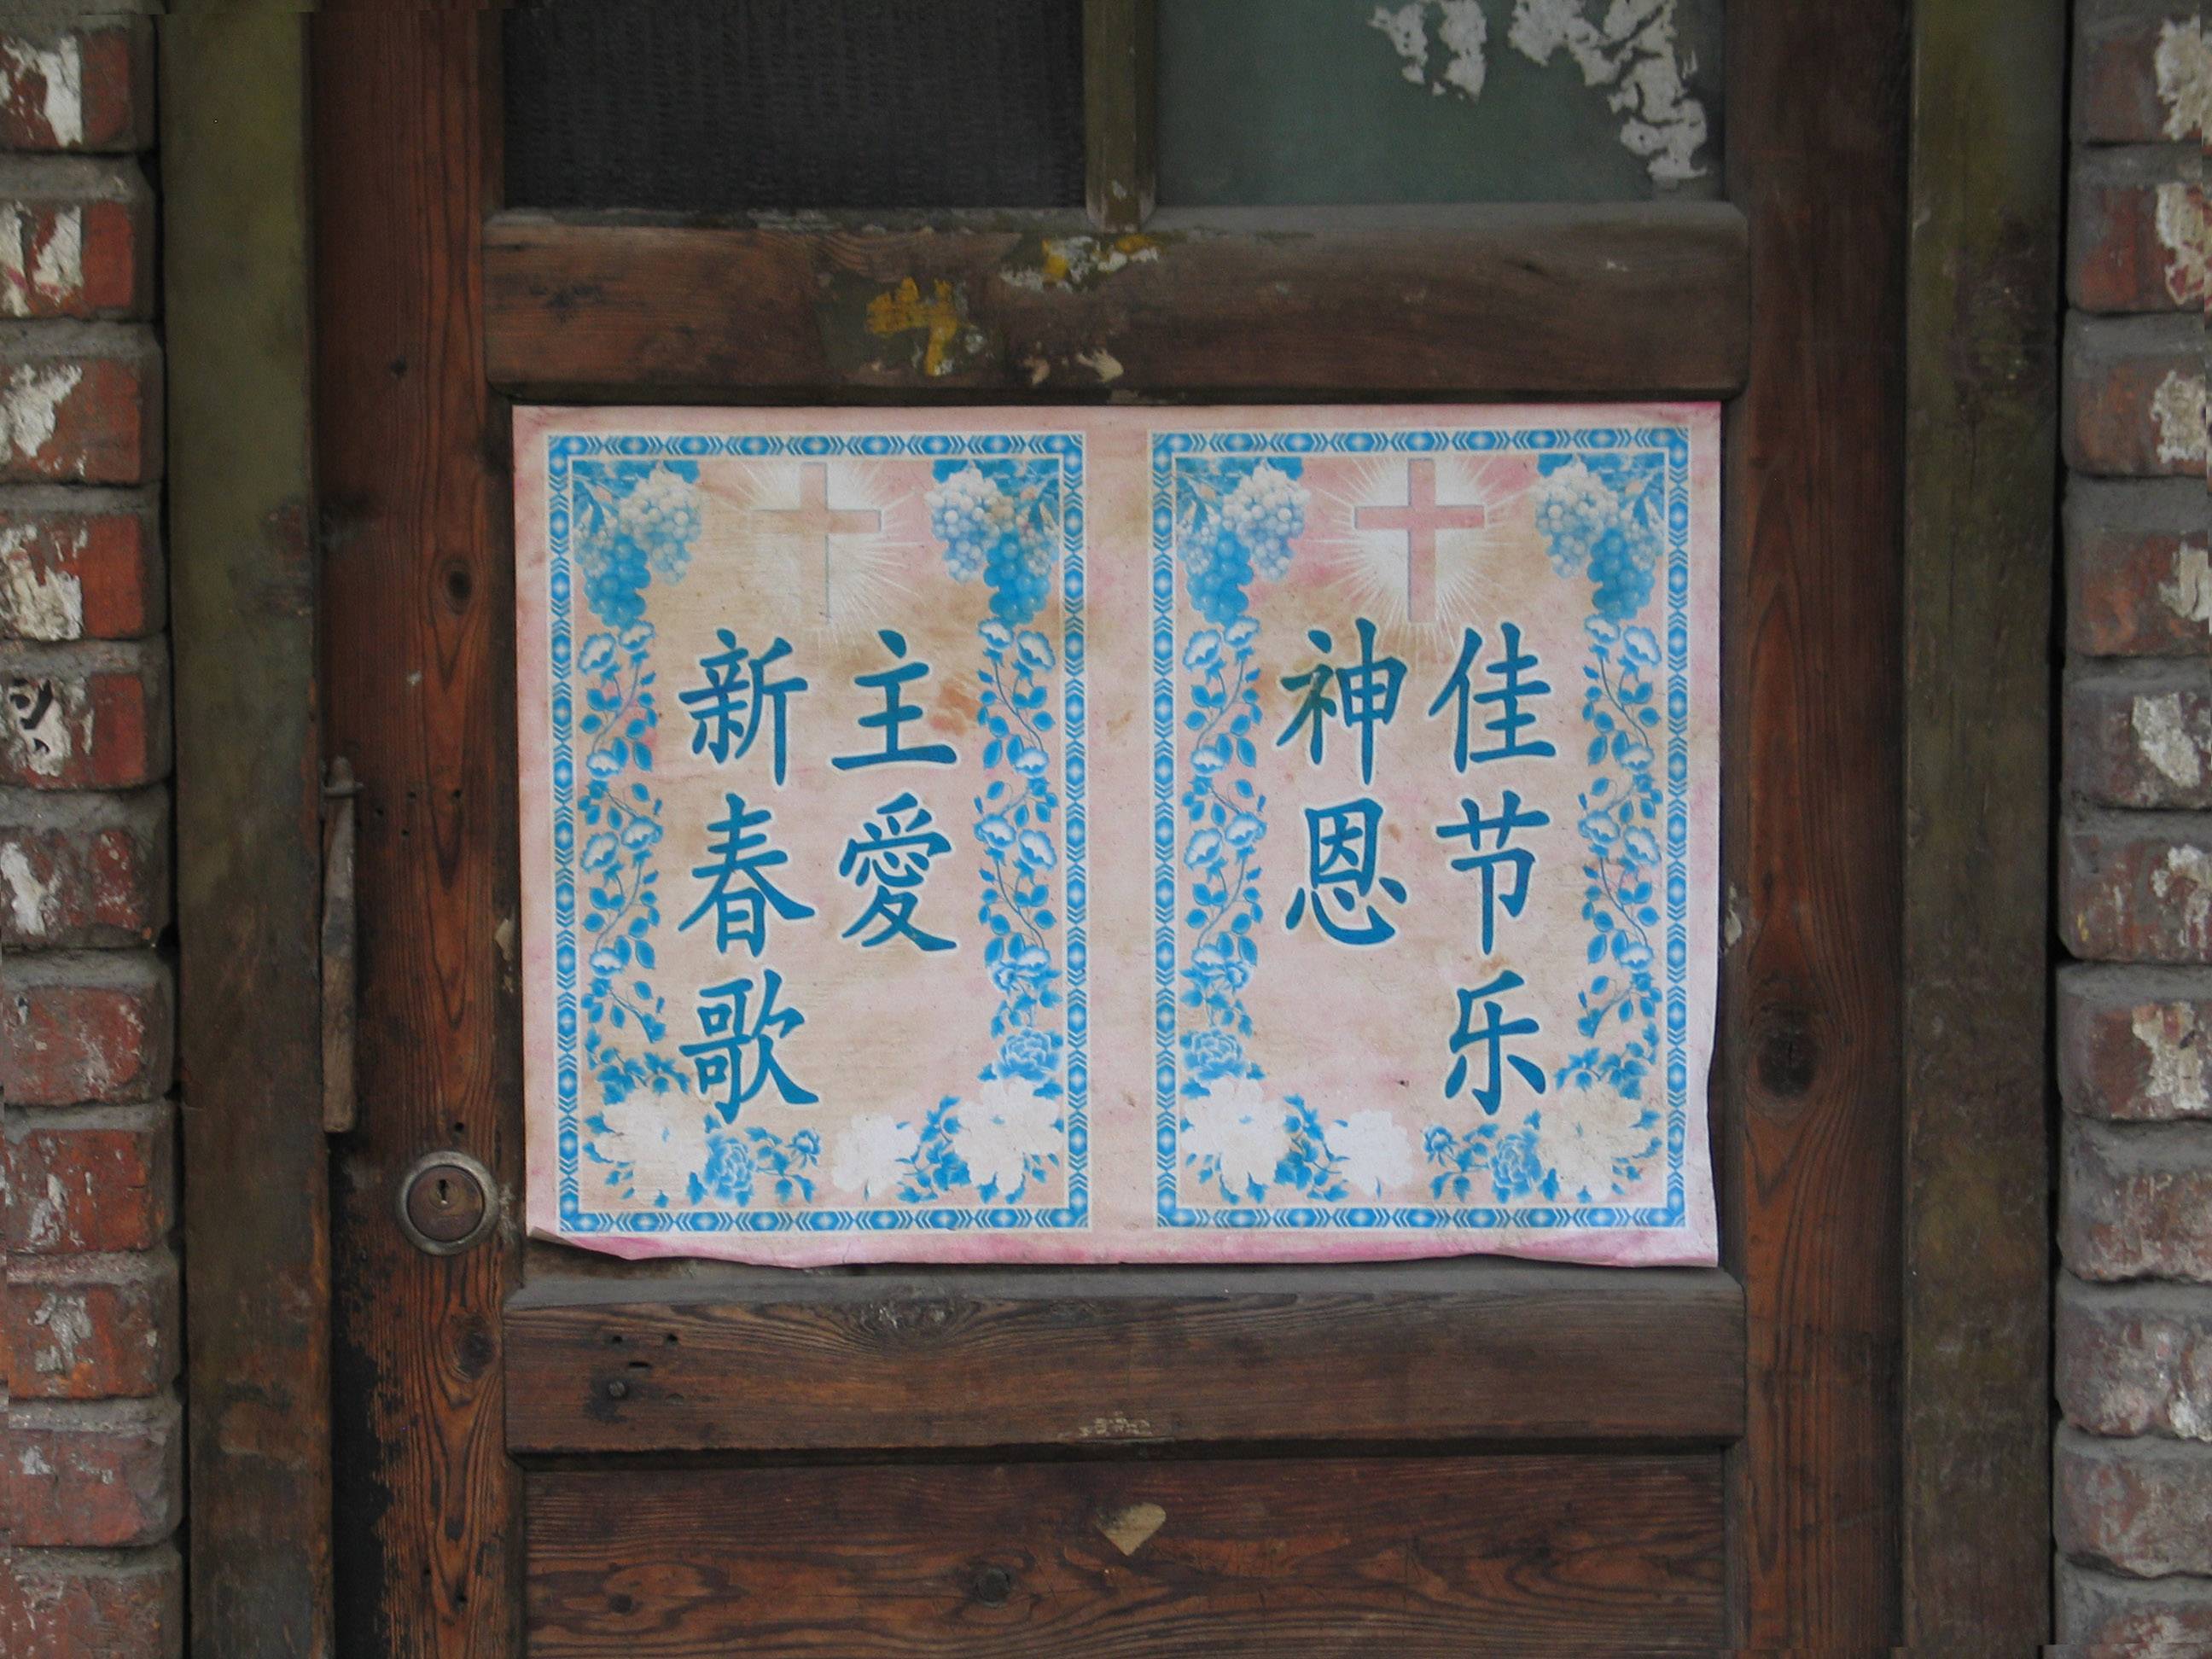 新春歌
主愛
佳节乐
神恩